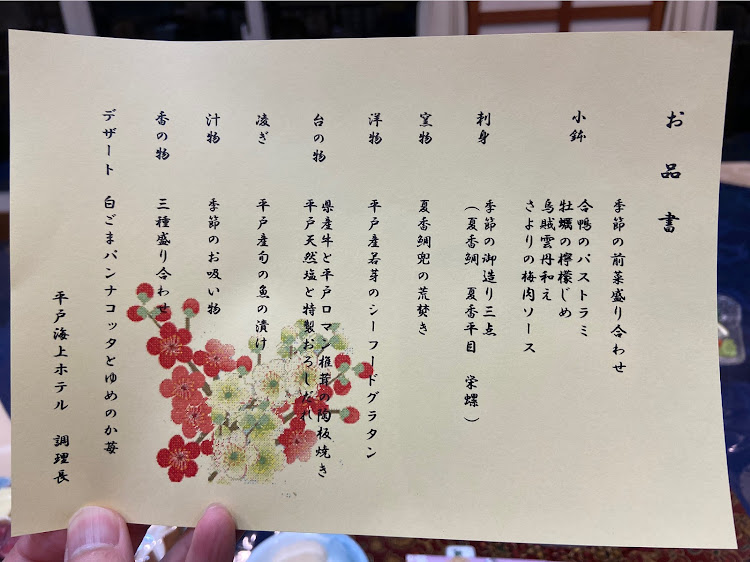 お品書
季節の前菜盛り合わせ
小鉢
合鴨のパストラミ
牡蠣の檸檬じめ
烏賊雲丹和え
さよりの梅肉ソース
刺身
季節の御造り三点
（夏香鯛　夏香平目　栄螺）
窯物
夏香鯛兜の荒焚き
洋物
平戸産若芽のシーフードグラタン
台の物
県産牛と平戸ロマン椎茸の陶板焼き
平戸天然塩と特製おろしだれ
凌ぎ
平戸産旬の魚の漬け
汁物
季節のお吸い物
香の物
三種盛り合わせ
デザート　白ごまパンナコッタとゆめのか苺
平戸海上ホテル　調理長